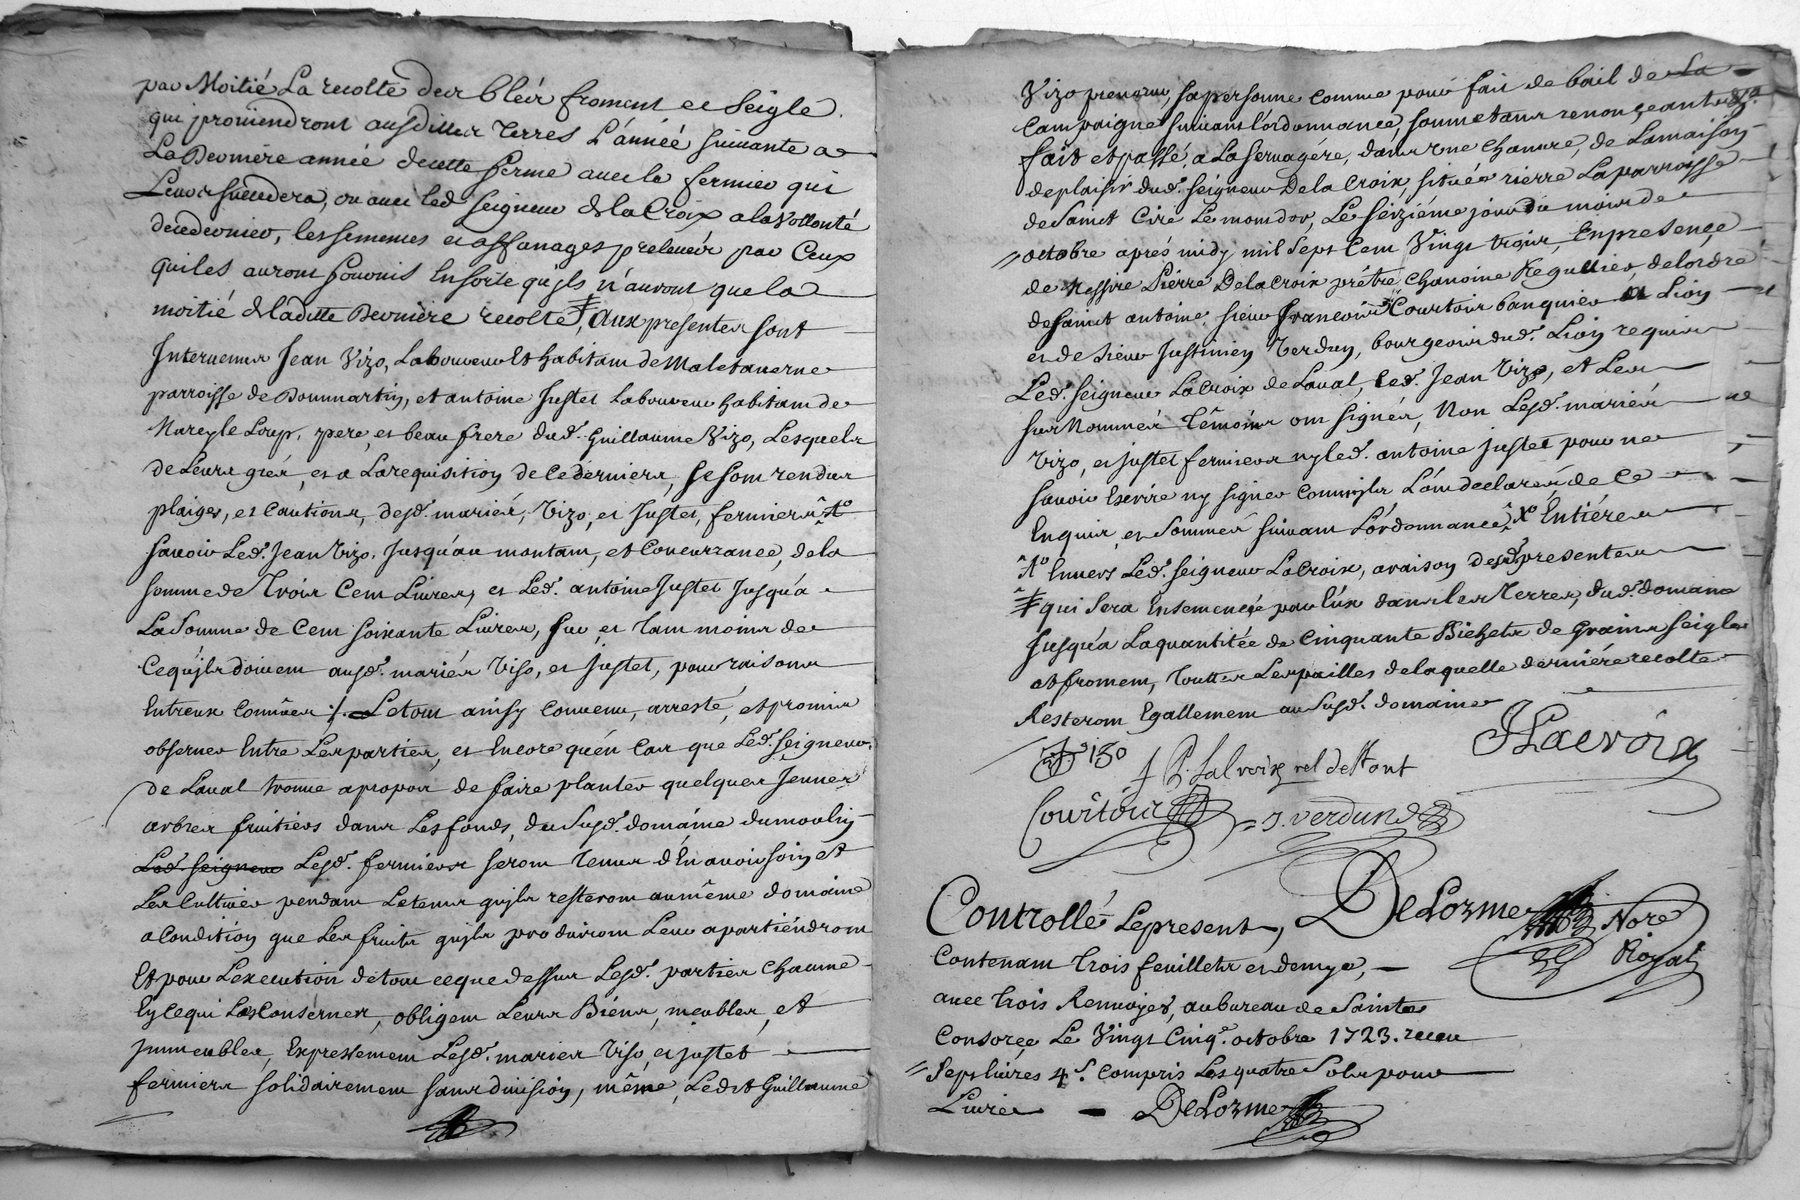 par Moitié La recolte des bleds froment et Seigle
qui proviendront ausdittes terres L'année suivante a
La Derniere année de cette ferme avec le fermier qui
Leur succedera, ou avec led. seigneur de la Croix a la vollonté
de ce dernier, les semences et affanages prelevés par Ceux
qui les auront fournis En sorte qu'jls n'auront que la
moitié de laditte Derniere recolte ⧧, Aux presentes sont
Intervenus Jean Vizo, Laboureur Et habitant de Maletaverne
parroisse de Dommartin, et antoine Justet Laboureur habitant de
Marcy le Loup, pere, et beau frere dud. Guillaume Vizo, Lesquels
de Leurs gréz, et a La requisition de ce derniers, se sont rendus
plaiges, et Cautions, desd. mariés, Vizo, et Justet, fermiers
savoir Led. Jean Vizo, Jusqu'au montant, et Concurrance, de la
somme de Trois Cent Livres, et Led. antoine Justet Jusqu'a
La Somme de Cent soixante Livres, sur et tant moins de
Ce qu'jls doivent aud. mariés Viso, et Justet, pour raisons
Entreux Connües ⁒. Le tout ainsy Convenu, arresté, et promis
observer Entre Les parties, et Encore qu'en Cas que Led. Seigneur
de Laval trouve apropos de faire planter quelques Jeunes
arbres fruitiers dans Les fonds, du Susd. domaine du moulin
Led. seigneur Lesd. fermiers seront tenus d'En avoir soin et
Les Cultiver pendant Le tems qu'jls resteront au même domaine
a Condition que Les fruits qu'jls produiront Leur apartiendront
Et pour L'execution de tout ce que dessus Lesd. parties Chacune
En ce qui Les Conserner, obligent Leurs Biens, meubles, et
jmmeubles, Expressement Lesd. maries Viso, et justet
fermiers solidairement sans division, même, Ledit Guillaume
Vizo preneur, sa personne comme pour fait de bail de La
Campaigne suivant L'ordonnance, soumetans renonçeants &a.
fait et passé, a La servagére, dans une Chambre, de La maison
de plaisir dud. seigneur De la Croix, située rierre La parroisse
de Saint Ciré Le montdor, Le Seiziéme jour du mois de
octobre aprés midy mil Sept Cent Vingt trois, En presençe
de Messire Pierre De la Croix prêtre Chanoine Regullier, de lordre
de saint antoine, sieur François Courtois banquier a Lion
et de Sieur Justinien Verdun, bourgeois dud. Lion requis
Led. seigneur Lacroix de Laval, Led. Jean Vizo, et Les
sus Nommés Témoins ont signés, Non Lesd. mariés
Vizo, et justet fermiers ny led. antoine justet pour ne
savoir Escrire ny signer Comm'jls L'ont declarés de Ce
Enquis, et Sommés suivant L'ordonnance, Entiére
Envers Led. seigneur La Croix, a raison desd. presentes
⧧ qui Sera Ensemencée par Eux dans les terres, dud. domaine
Jusqu'a La quantitée de Cinquante Bichets de Grains Seigle
et froment, Touttes Les pailles de laquelle derniére recolte
Resteront Egallement au Susd. domaine
JLacroix
P. Lalroix
Courtois J. Verdun
DeLorme Nore
Royal
Controllé Le present,
Contenant trois feuillets et demye,
avec trois Renvoyes, au bureau de Sainte
Consorçe Le Vingt Cinq.e octobre 1723. receu
Sept livres 4 s. Compris Les quatre Sols pour
Livre DeLorme